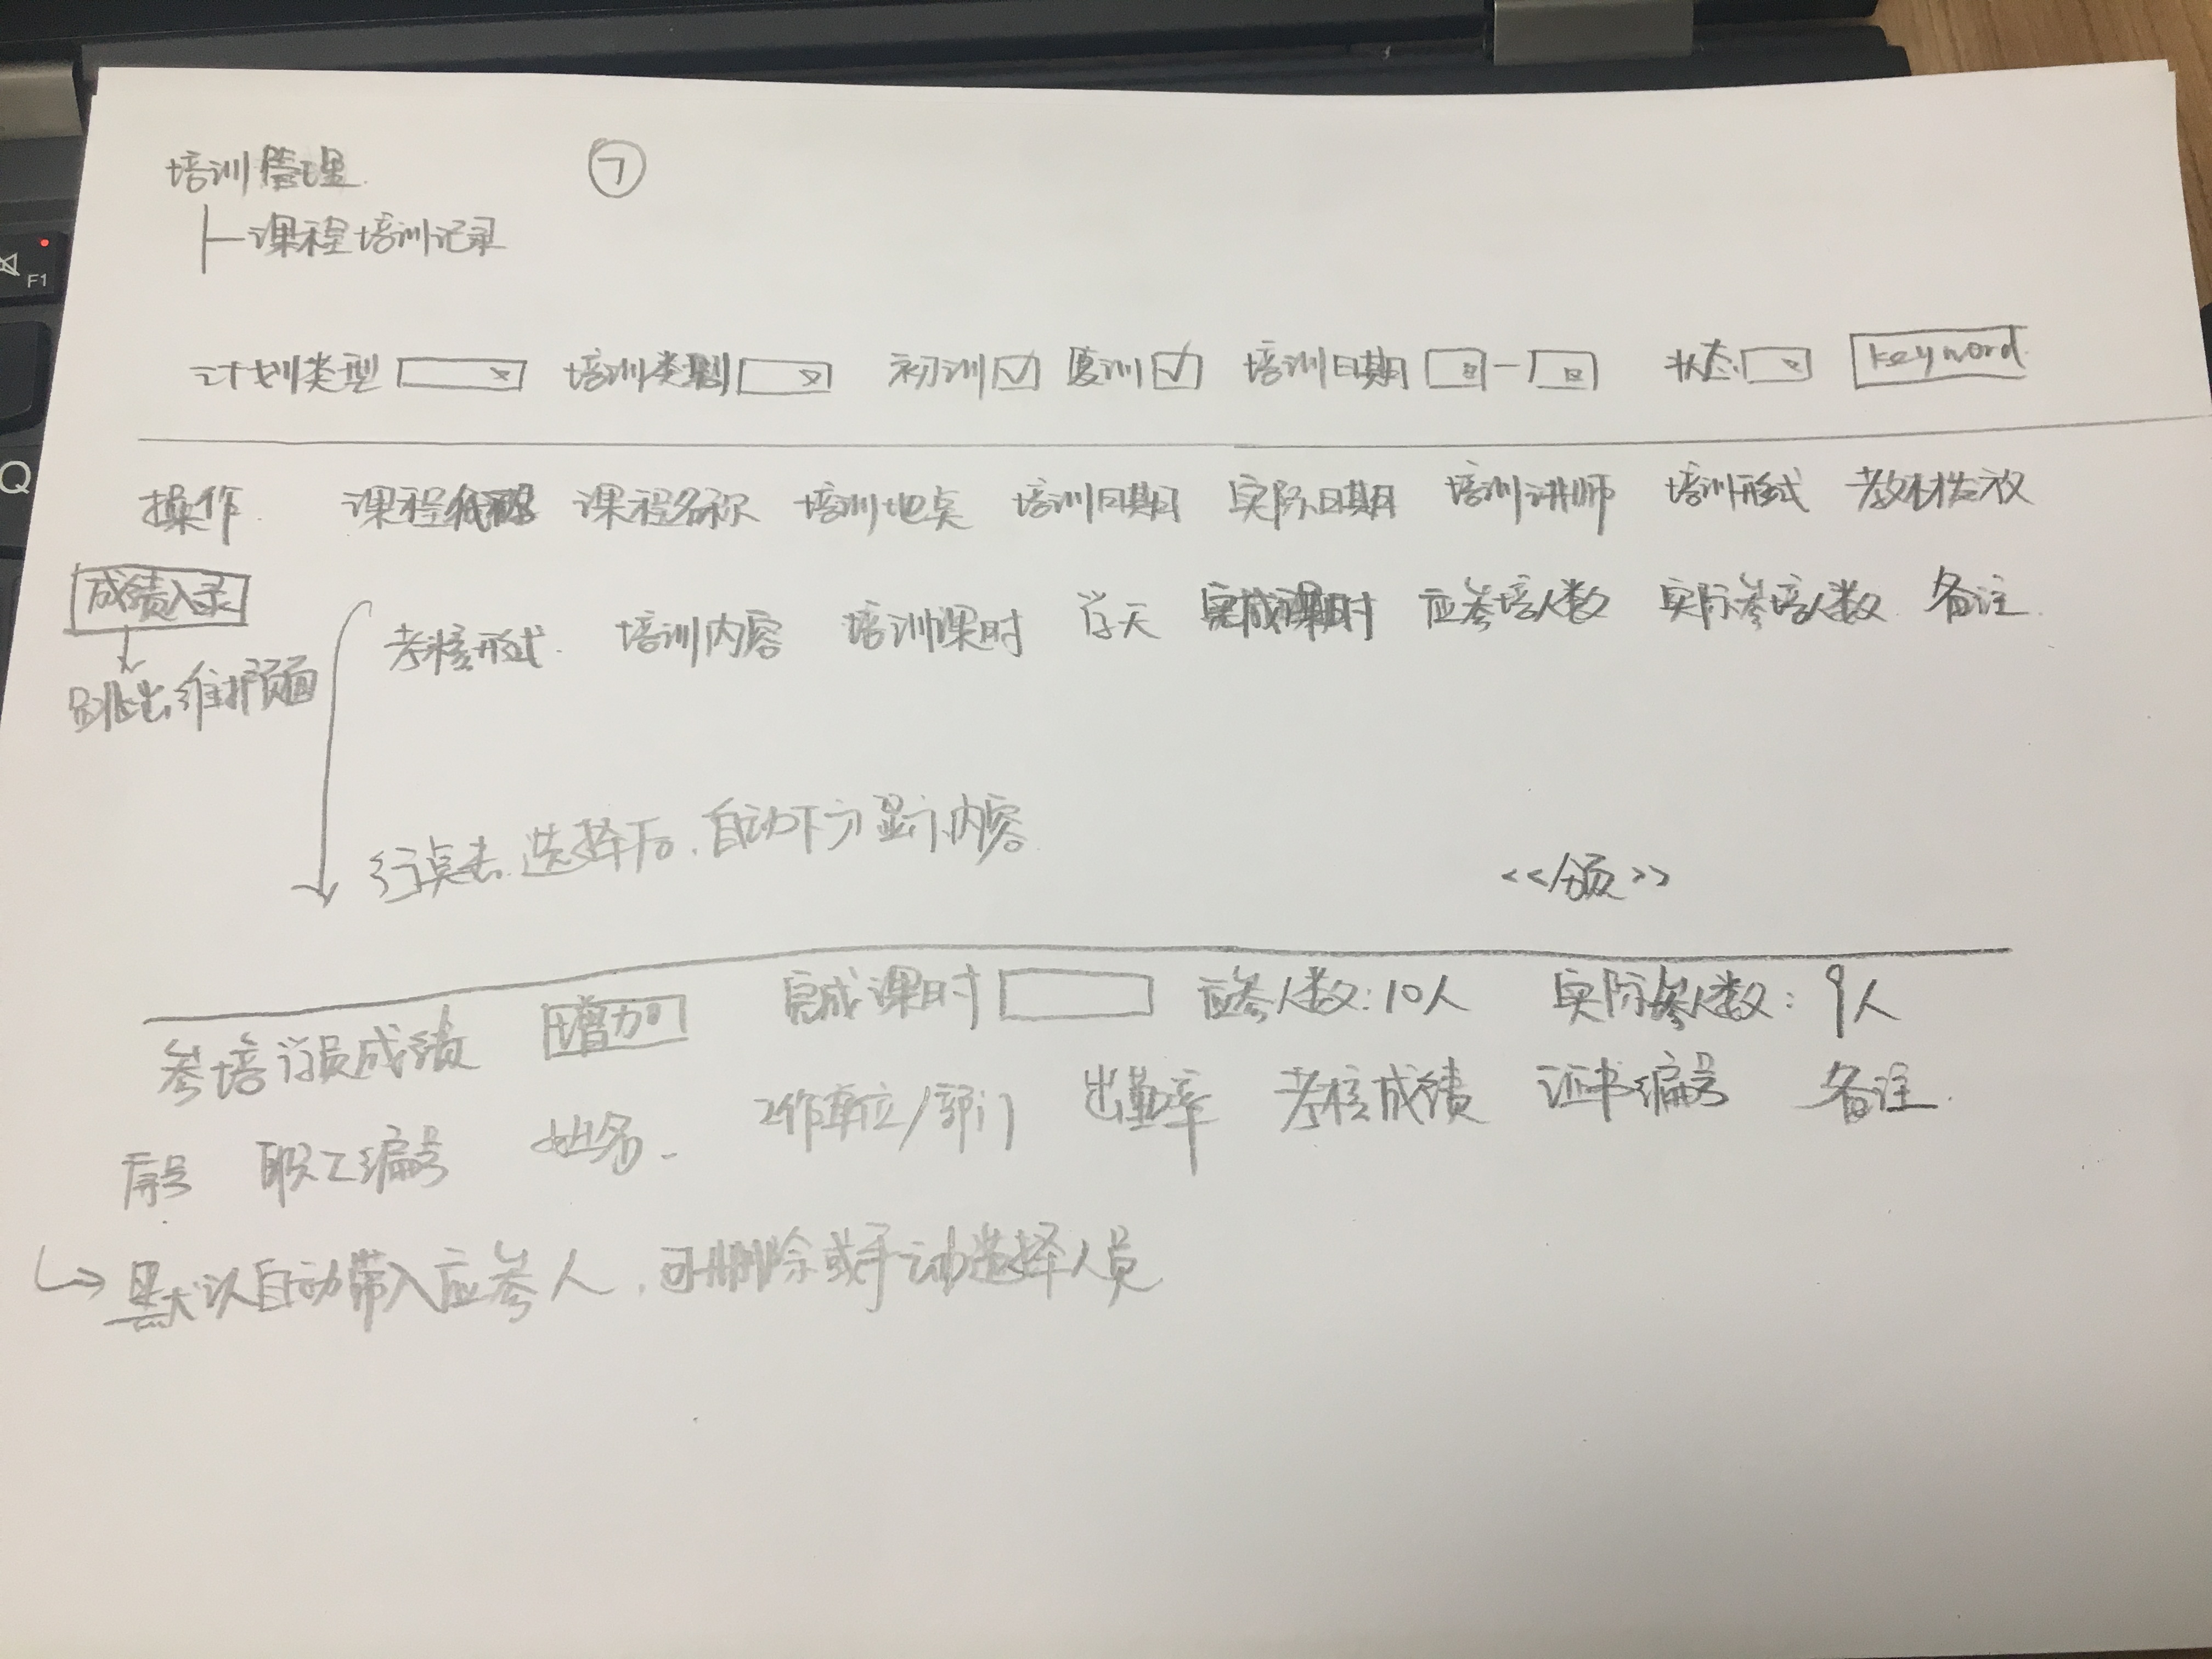 培训管理 ⑦
课程培训记录
计划类型 培训类别 初训 复训 培训日期 - 状态 keyword
操作 课程代码 课程名称 培训地点 培训日期 实际日期 培训讲师 培训形式 教材发放
成绩入录
考核形式 培训内容 培训课时 学天 完成课时 应参培人数 实际参培人数 备注
跳出维护页面
行点击选择后,自动下方显示内容
<<分页>>
参培学员成绩 增加 完成课时 应参人数:10人 实际参人数:9人
序号 职工编号 姓名 工作单位/部门 出勤率 考核成绩 证书编号 备注
默认自动带入应参人,可删除或手动选择人员
F1
Q